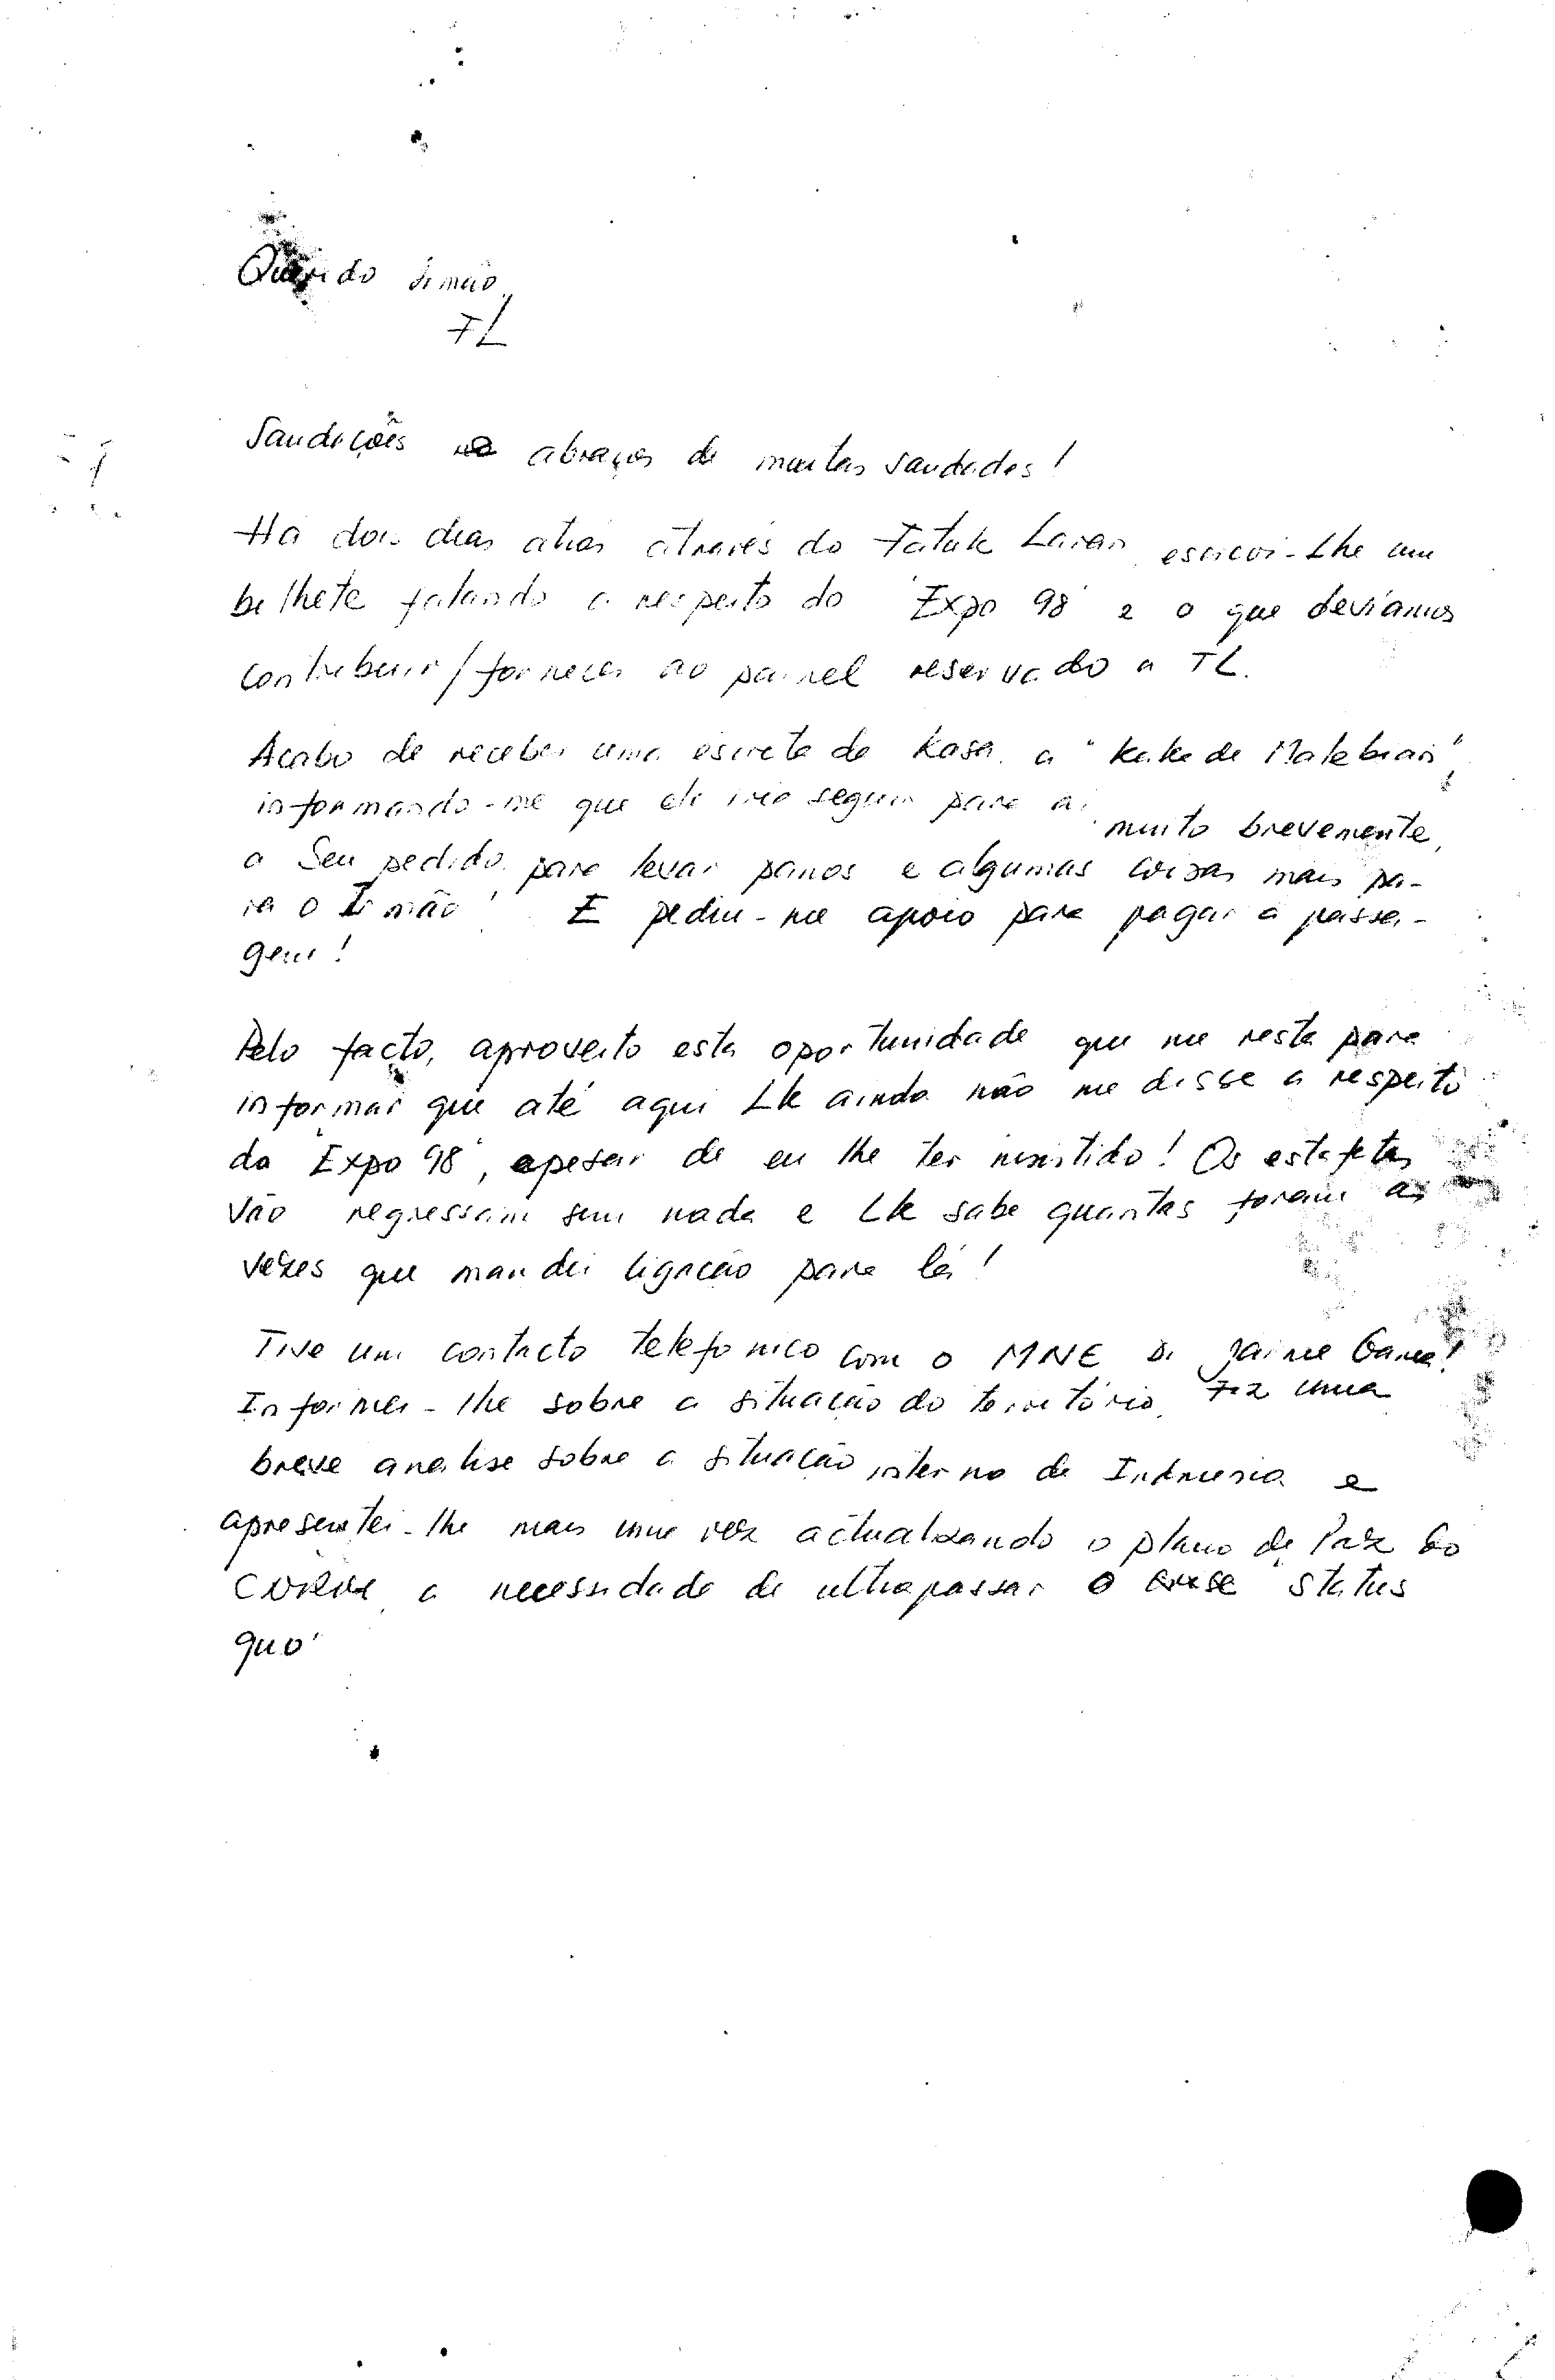 Querido Irmão,
TL
Saudações abraços de muitas saudades!
Há dois dias atrás através do Fatuk Laran, escrevi-Lhe um
belhete falando a respeito do "Expo 98" e o que devíamos
contribuir/fornecer ao painel reservado a TL.
Acabo de receber uma escrita de Kasa, a "Kaka de Matebian",
informando-me que ele irá seguir para aí muito brevemente,
a Seu pedido para levar panos e algumas coisas mais pa-
ra o Irmão! E pediu-me apoio para pagar a passa-
gem!
Pelo facto, aproveito esta oportunidade que me resta para
informar que até aqui Lk ainda não me disse a respeito
da "Expo 98", apesar de eu lhe ter insistido! Os estafetas
vão regressam sem nada e Lk sabe quantas foram as
vezes que mandei ligação para lá!
Tive um contacto telefonico com o MNE Dr Jaime Gama!
Informei-lhe sobre a situação do território, Fiz uma
breve analise sobre a situação interna da Indonesia e
apresentei-lhe mais uma vez actualizando o plano de Paz do
a necessidade de ultrapassar o "status
quo"